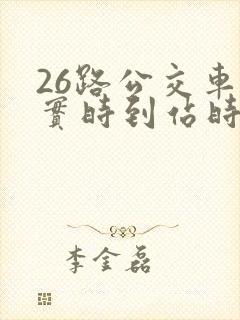 26路公交車
實時到佔時
李金磊